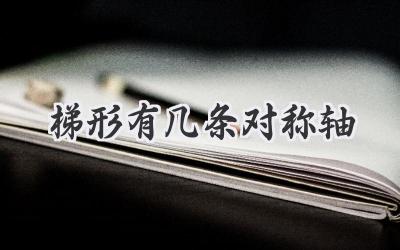 梯形有几条对称轴